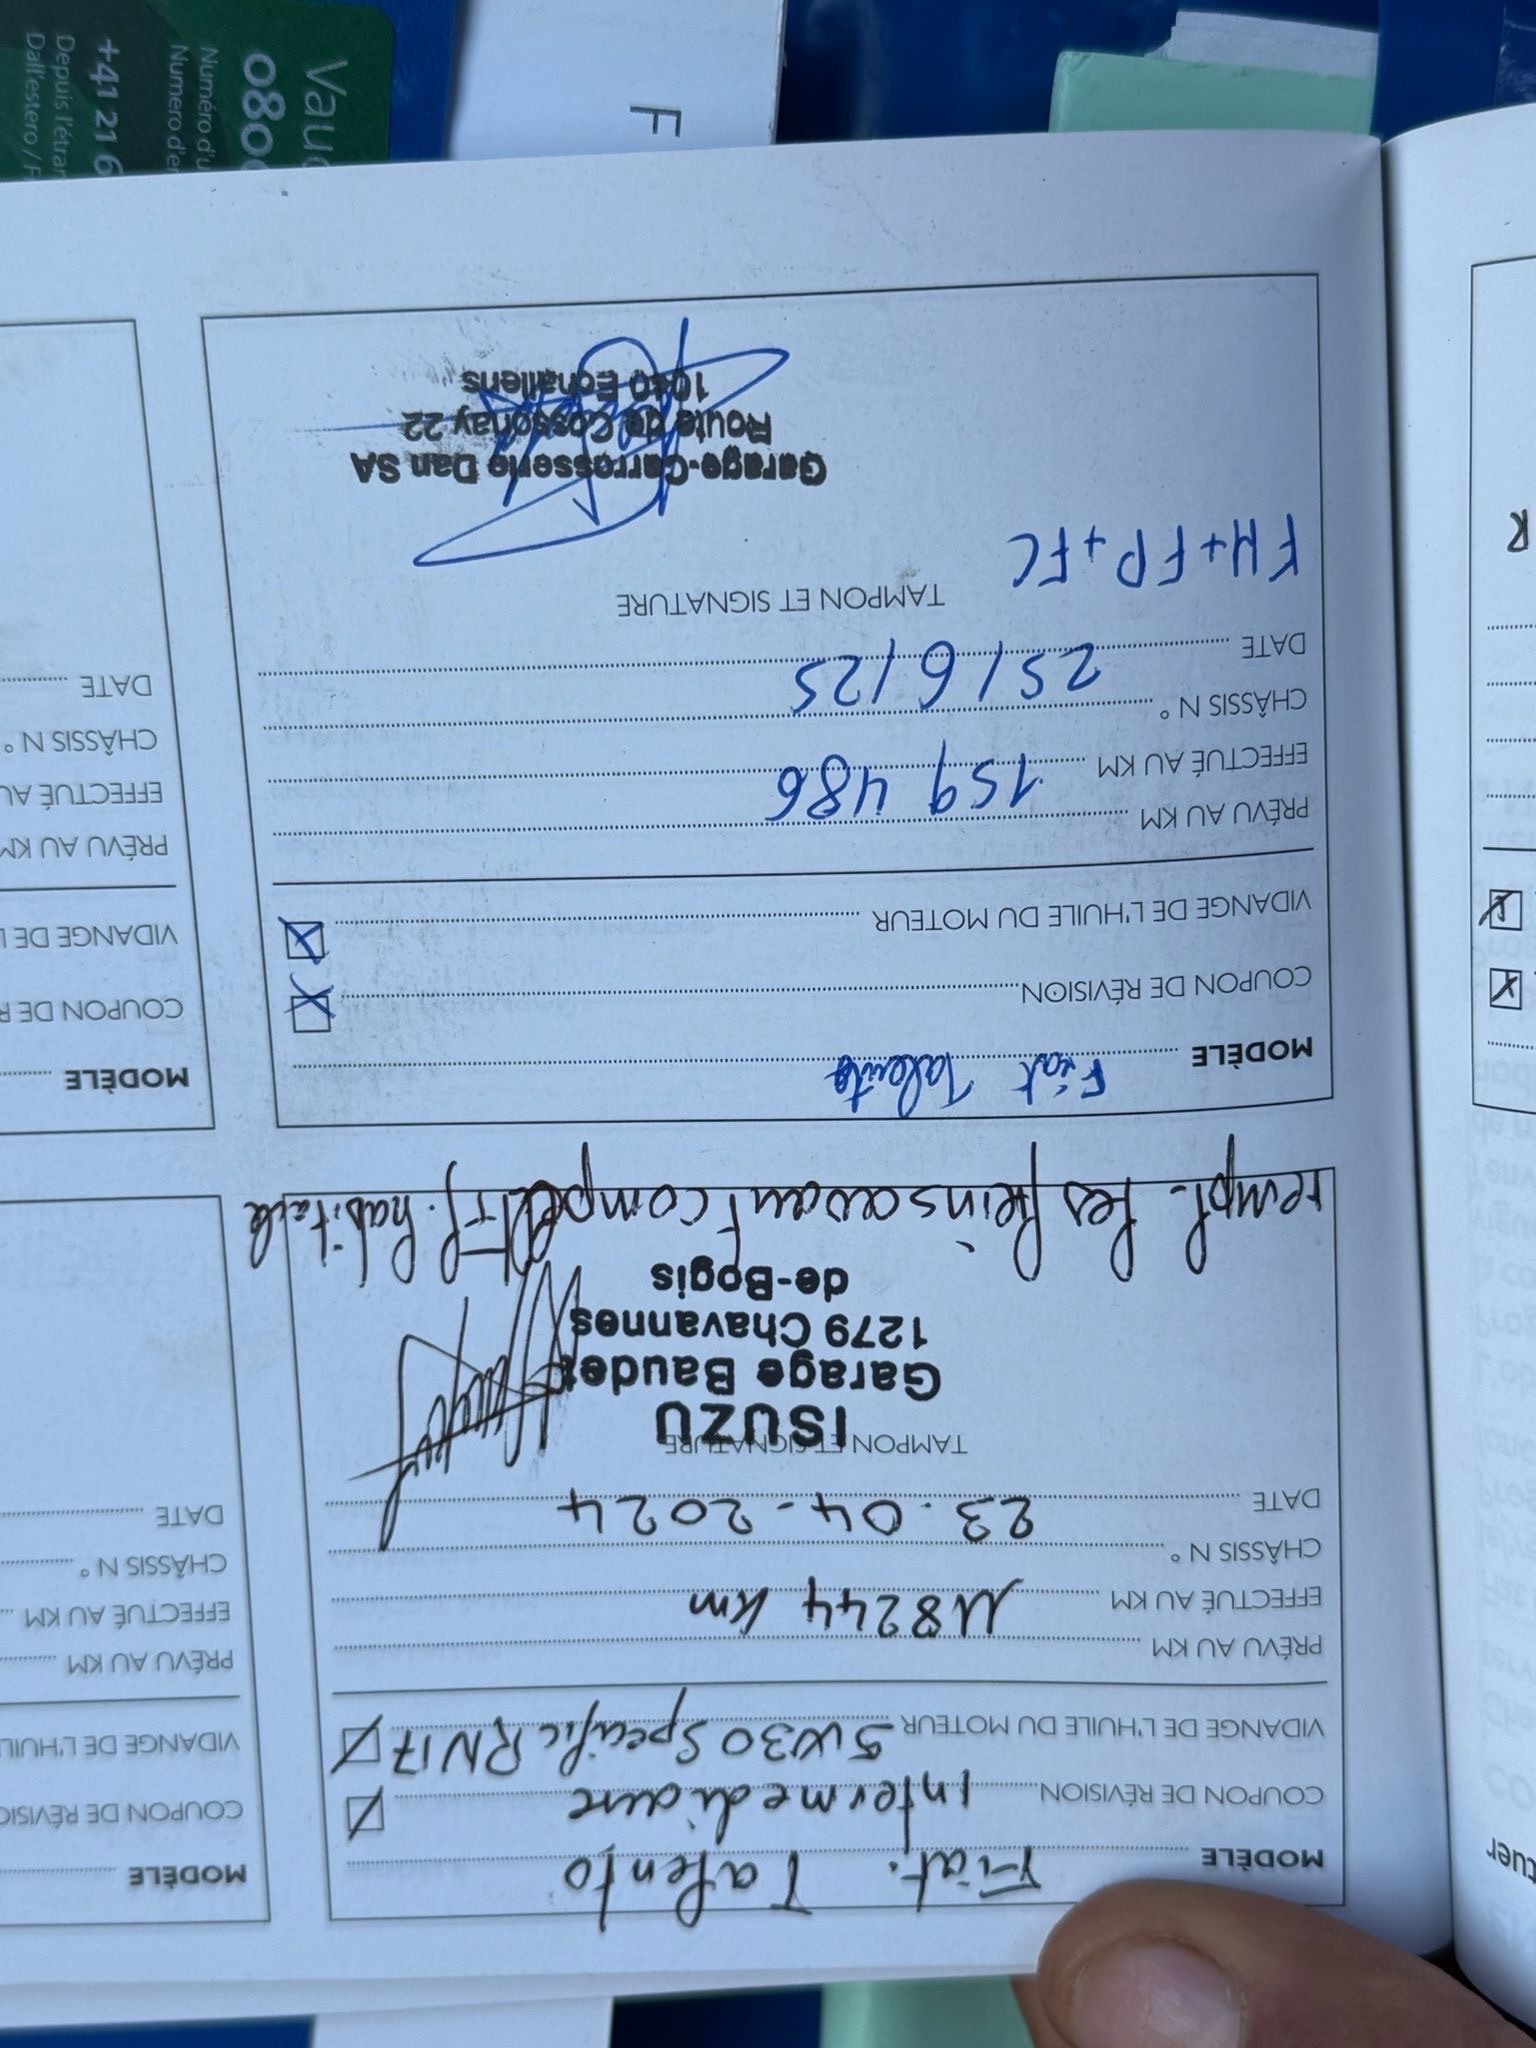 MODÈLE Fiat. Talento
COUPON DE RÉVISION Intermediaire
VIDANGE DE L'HUILE DU MOTEUR 5W30 Specific RN17
PRÉVU AU KM
EFFECTUÉ AU KM 118244 km
CHÂSSIS N°
DATE 23.04-2024
TAMPON ET SIGNATURE
ISUZU
Garage Baudet
1279 Chavannes
de-Bogis
rempl. les freins avant complet + f. habitacle
MODÈLE Fiat Talento
COUPON DE RÉVISION
VIDANGE DE L'HUILE DU MOTEUR
PRÉVU AU KM
EFFECTUÉ AU KM 159 486
CHÂSSIS N°
DATE 25/6/25
TAMPON ET SIGNATURE
FH+FP+FC
Garage-Carrosserie Dan SA
Route de Cossonay 22
1040 Echallens
MODÈLE
COUPON DE RÉVISIO
VIDANGE DE L'HUILE
PRÉVU AU KM
EFFECTUÉ AU KM
CHÂSSIS N°
DATE
MODÈLE
COUPON DE R
VIDANGE DE L
PRÉVU AU KM
EFFECTUÉ AU
CHÂSSIS N°
DATE
tuer
R
F
Vaud
080
Numéro d'u
Numero d'er
+41 21 6
Depuis l'étran
Dall'estero / F